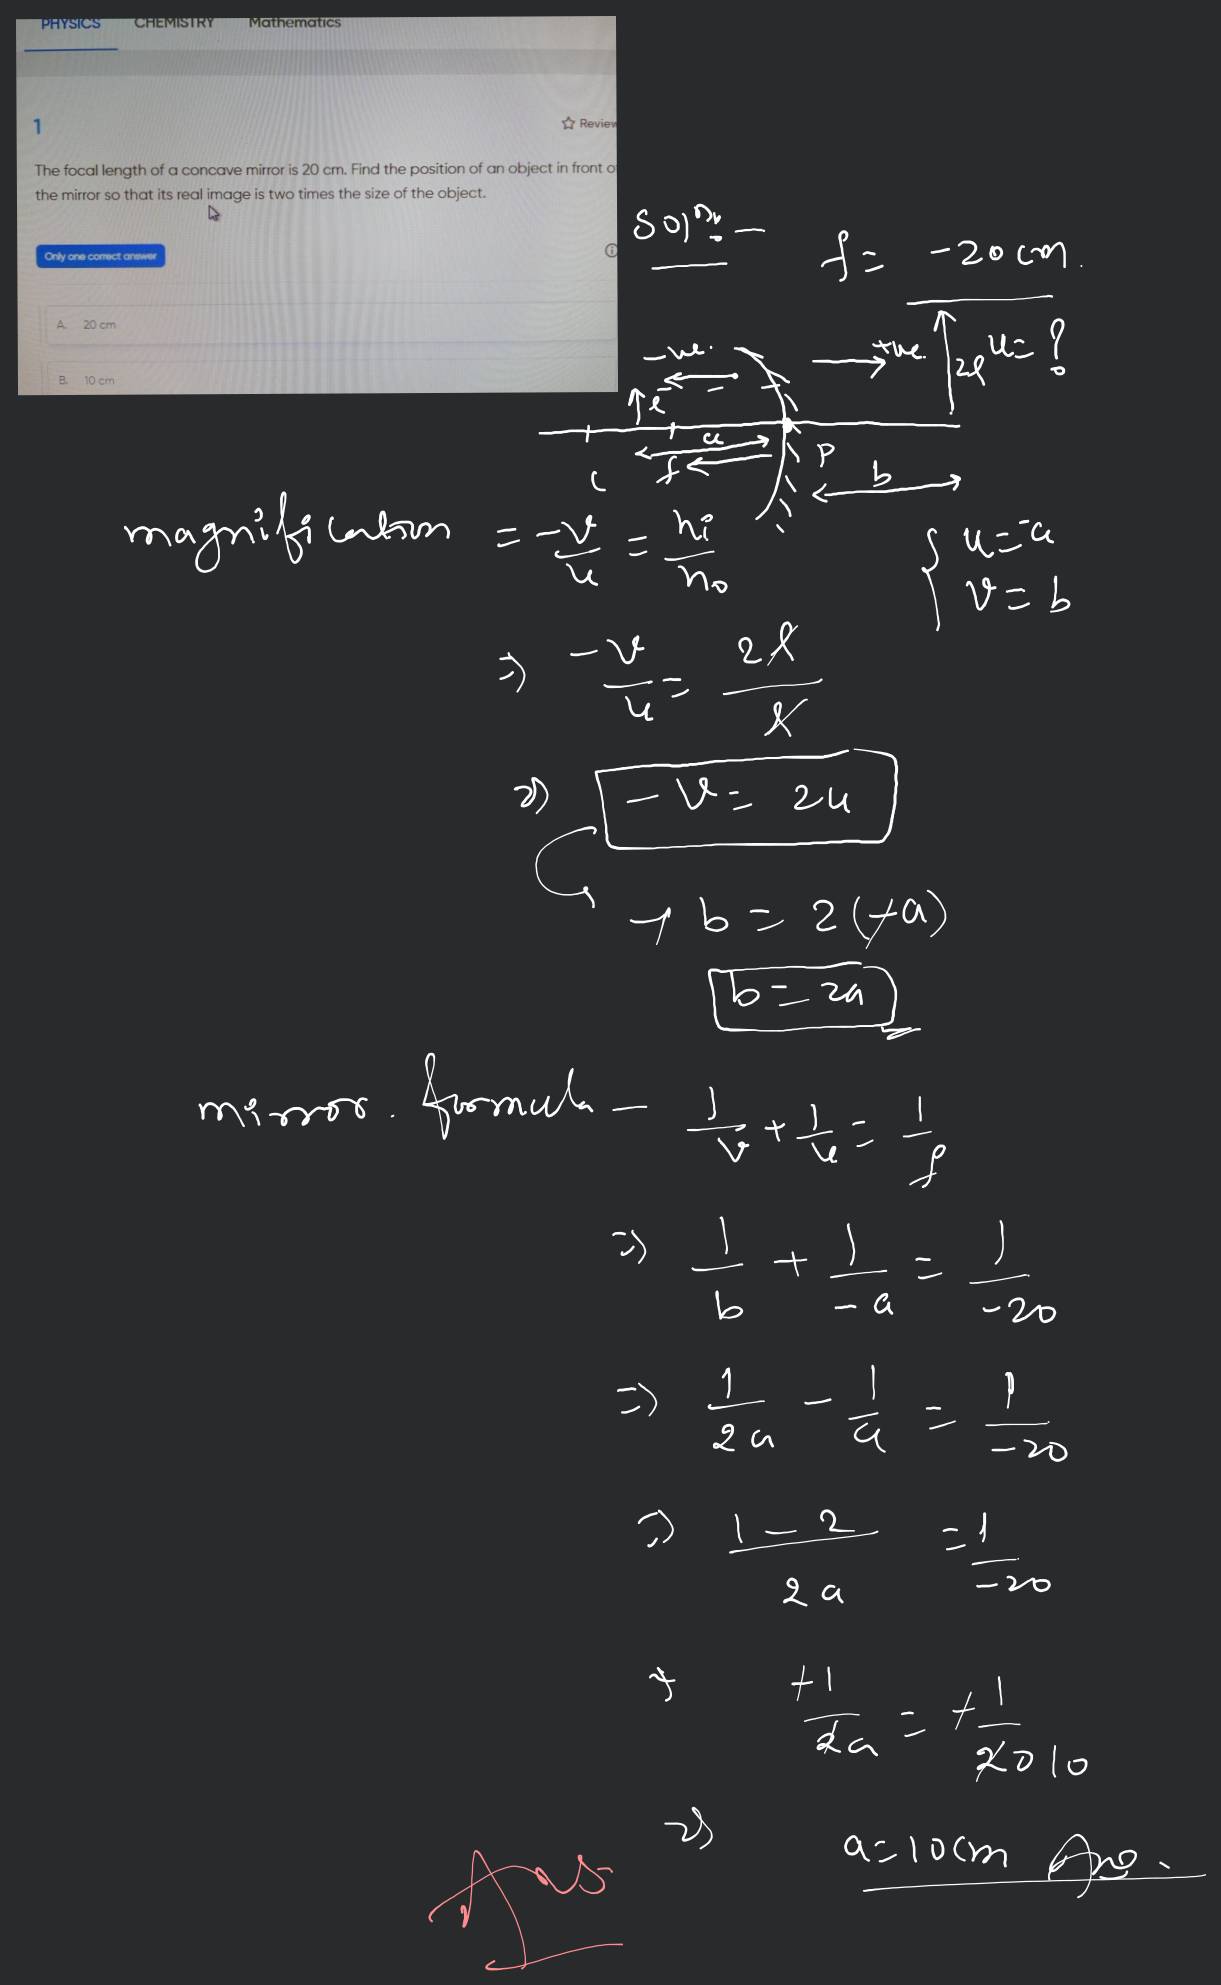 PHYSICS CHEMISTRY Mathematics
1
Review
The focal length of a concave mirror is 20 cm. Find the position of an object in front o
the mirror so that its real image is two times the size of the object.
Only one correct answer
A. 20 cm
B. 10 cm
Soln. -
f = -20 cm.
-ve. +ve. 2l u = ?
a
f P b
C
magnification = -v/u = hi/ho
{ u = -a
v = b
=> -v/u = 2l/l
=> -v = 2u
-b = 2(-a)
b = 2a
mirror. formula - 1/v + 1/u = 1/f
=> 1/b + 1/-a = 1/-20
=> 1/2a - 1/a = 1/-20
=> 1-2/2a = 1/-20
+1/2a = +1/20 10
=> a = 10 cm Ans.
Ans